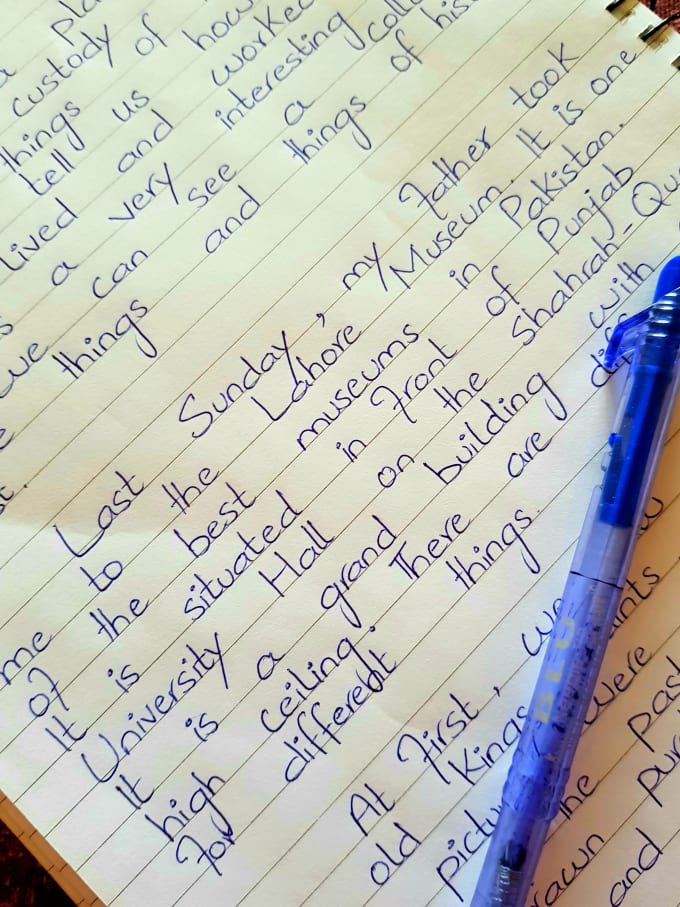 a pla
custody
things of
tell us how
lived and worked
a very interesting
we can see a colle
things and things of his
Last Sunday, my Father took
me to the Lahore Museum. It is one
of the best museums in Pakistan.
It is situated in Front of Punjab
University Hall on the Shahrah-Qu
It is a grand building with
high ceiling. There are diff
For different things.
At First, we
old Kings
pictu were
rawn the past
and pur